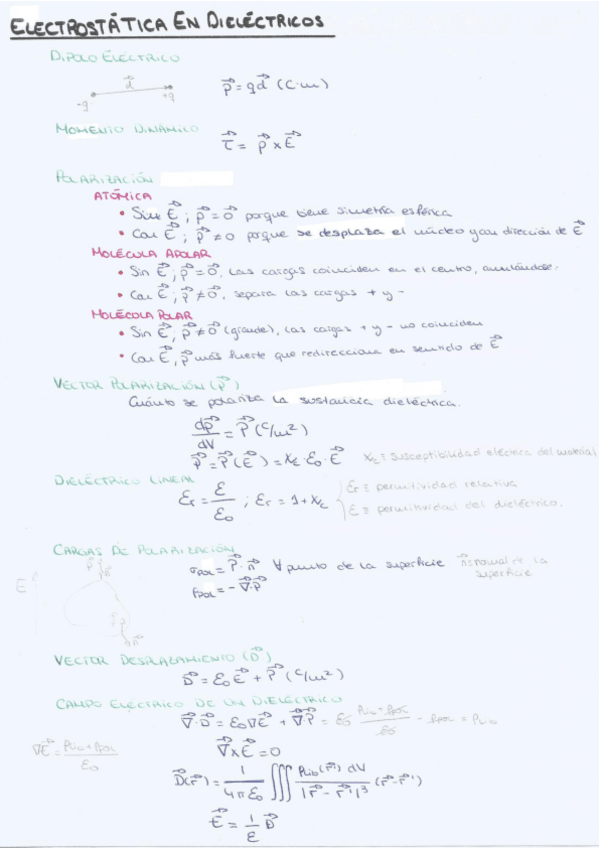 ELECTROSTÁTICA EN DIELÉCTRICOS
DIPOLO ELÉCTRICO
d⃗
-q +q
p⃗ = qd⃗ (C·m)
MOMENTO DINÁMICO
τ⃗ = p⃗ × E⃗
POLARIZACIÓN
ATÓMICA
• Sin E⃗; p⃗ = 0⃗ porque tiene simetría esférica
• Con E⃗; p⃗ ≠ 0 porque se desplaza el núcleo y en dirección de E⃗
MOLÉCULA APOLAR
• Sin E⃗; p⃗ = 0⃗, las cargas coinciden en el centro, anulándose.
• Con E⃗; p⃗ ≠ 0⃗, separa las cargas + y -
MOLÉCULA POLAR
• Sin E⃗, p⃗ ≠ 0⃗ (grande), las cargas + y - no coinciden
• Con E⃗, p⃗ más fuerte que redirecciona en sentido de E⃗
VECTOR POLARIZACIÓN (P⃗)
Cuánto se polariza la sustancia dieléctrica.
dp⃗/dV = P⃗ (C/m²)
P⃗ = P⃗(E⃗) = χε · ε₀ · E⃗ χε ≡ susceptibilidad eléctrica del material
DIELÉCTRICO LINEAL
εr = ε/ε₀ ; εr = 1 + χε { εr ≡ permitividad relativa
ε ≡ permitividad del dieléctrico.
CARGAS DE POLARIZACIÓN
σpol = P⃗ · n⃗ ∀ punto de la superficie n⃗ ≡ normal de la superficie
E⃗
ρpol = -∇⃗·P⃗
VECTOR DESPLAZAMIENTO (D⃗)
D⃗ = ε₀E⃗ + P⃗ (C/m²)
CAMPO ELÉCTRICO DE UN DIELÉCTRICO
∇⃗·D⃗ = ε₀∇E⃗ + ∇⃗·P⃗ = ε₀ (ρlib + ρpol)/ε₀ - ρpol = ρlib
∇E⃗ = (ρlib + ρpol)/ε₀
∇⃗×E⃗ = 0
D⃗(r⃗) = 1/4πε₀ ∭ ρlib(r⃗') dV/|r⃗ - r⃗'|³ (r⃗ - r⃗')
E⃗ = 1/ε D⃗